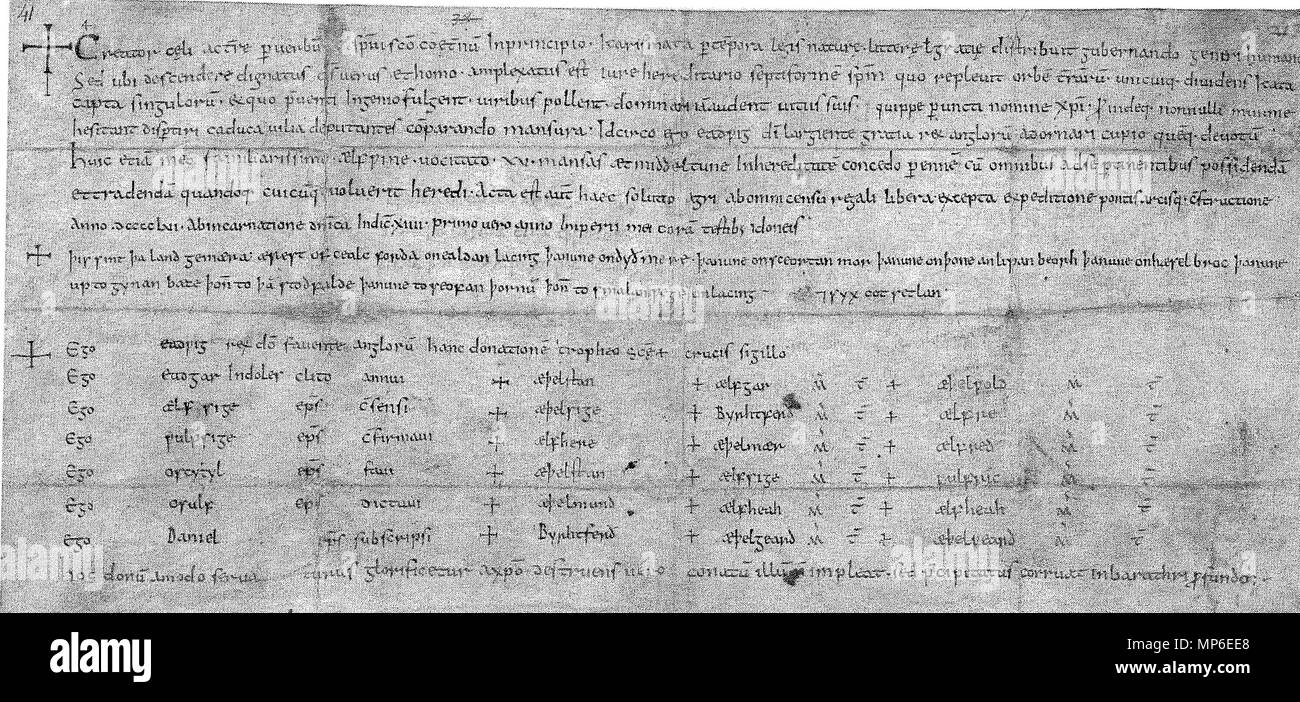 41
Creator cęli ac tr̄e p uerbū spm̄ scō coet̄nū Inprincipio · Icarismata p tēpora legis nature · littere ł gratię distribuit gubernando generi humano
Sed ubi descendere dignatus ds̄ uerus et homo · amplexatus est iure hereditario septiformē spm̄ quo repleuit orbē trarū · unicuiq; diuidens
capta singulorū · ex quo puenti Ingenio fulgent · uiribus pollent · dominari uitiis suis · quippe puncti nomine xp̄i · nonnulli minime
hesitant caduca uilia deputantes cōparando mansura · Idcirco ego eadƿig dī largiente gratia rex anglorū adornari cupio quēq; deuotū
huic etiā meo familiarissimo ælfƿine uocitato · xv · mansas æt middeltune Inhereditatē concedo pennē cū omnibus ad se ptinentibus possidendā
et tradendā quandoq; cuicūq; uoluerit heredi · Acta est aut̄ haec solutio agri abomni censu regali libera · excepta expeditione pontis arcisq; c̄structione
Anno · dcccclvi · Abincarnatione dn̄ica Indic̄ · xiiii · primo uero anno Imperii mei corā testib; idoneis
þis sint þa land gemæra · ærest of cealc forda on ealdan lacing þanune on dyd mere · þanune on sceortan mor þanune on þone anlipan beorh þanune on hæsel broc þanune
up to gynan bace þoñ to þā stodfalde þanune to reofan þornū þoñ to smalan ƿege on lacing ⁊ xyx cotsetlan
Ego eadƿig rex dō fauente anglorū hanc donationē tropheo scę + crucis sigillo
Ego eadgar Indoles clito annui + æþelstan + ælfgar m̄ t̄ + æþelƿold m̄ t̄
Ego ælfsige ep̄s c̄sensi + æþelsige + Byrhtferð m̄ t̄ + ælfsie m̄ t̄
Ego ƿulfsige ep̄s c̄firmaui + ælfhere + æþelmær m̄ t̄ + ælfred m̄ t̄
Ego oscytyl ep̄s faui + æþelstan + ælfsige m̄ t̄ + ƿulfric m̄ t̄
Ego osulf ep̄s dictaui + æþelmund + ælfheah m̄ t̄ + ælfheah m̄ t̄
Ego Daniel ep̄s subscripsi + Byrhtferð + æþelgeard m̄ t̄ + æþelgeard m̄ t̄
donū amodo glorificetur a xp̄o destruens uero conatū illum impleat · sed p̄cipitatus corruat in barathri p̄fundo ;
alamy
Image ID: MP6EE8
www.alamy.com